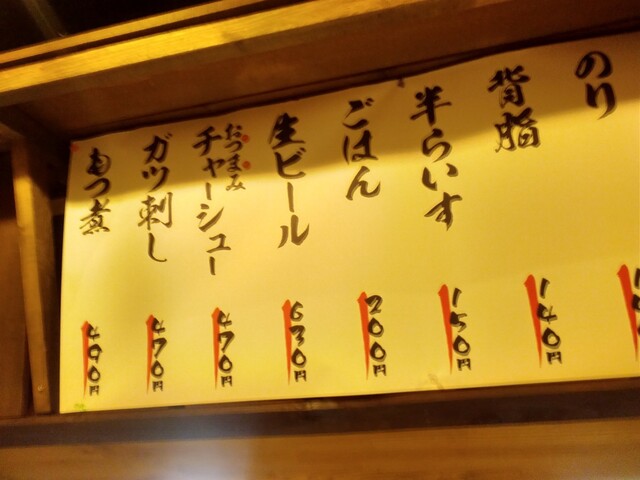 のり
背脂
140円
半らいす
150円
ごはん
200円
生ビール
630円
おつまみ
チャーシュー
470円
ガツ刺し
470円
もつ煮
490円